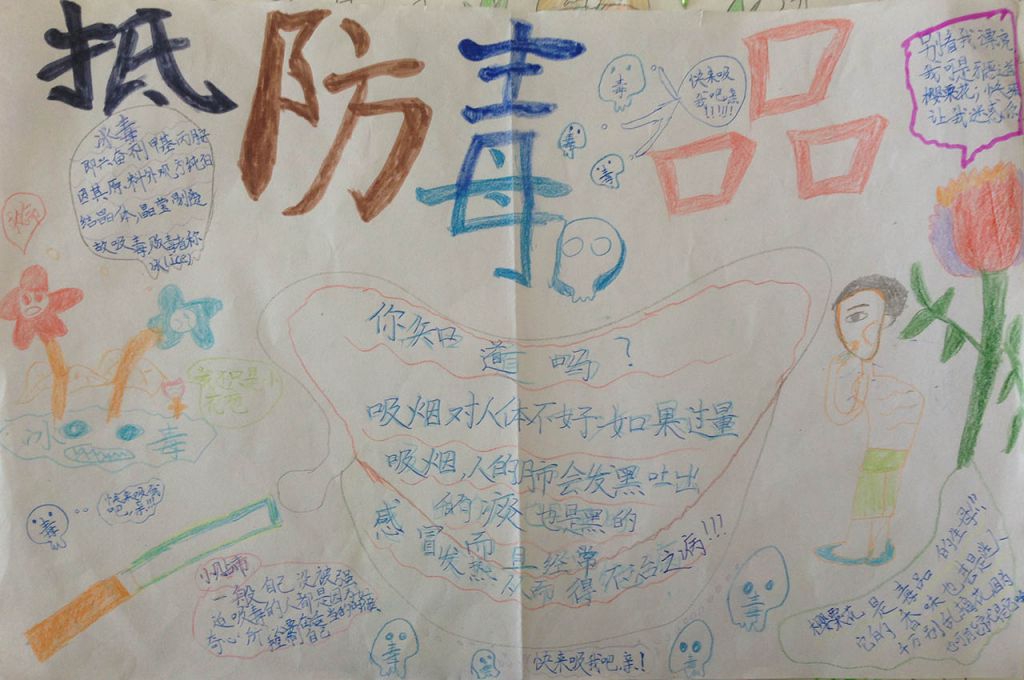 抵防毒品
冰毒
即兴奋剂甲基丙胺
因其原料外观为纯白
结晶体,晶莹剔透
故吸毒贩毒者称
冰(ice)
毒
毒
毒
快来吸
我吧亲
!!!!!
别看我漂亮
我可是
樱粟花,快来
让我迷惑你
你知道吗?
吸烟对人体不好.如果过量
吸烟,人的肺会发黑吐出
的痰也是黑的
感冒发热
而且经常
从而得不治之病!!!
我只是小
花苞
冰毒
快来吸我
吧,亲!!!
毒
小贴师
一般自己没被强
迫吸毒的人都是因为好
奇心所
控制自己
毒
毒
快来吸我吧.亲!
毒
毒
樱粟花是毒品的坐母!!
它的香味也